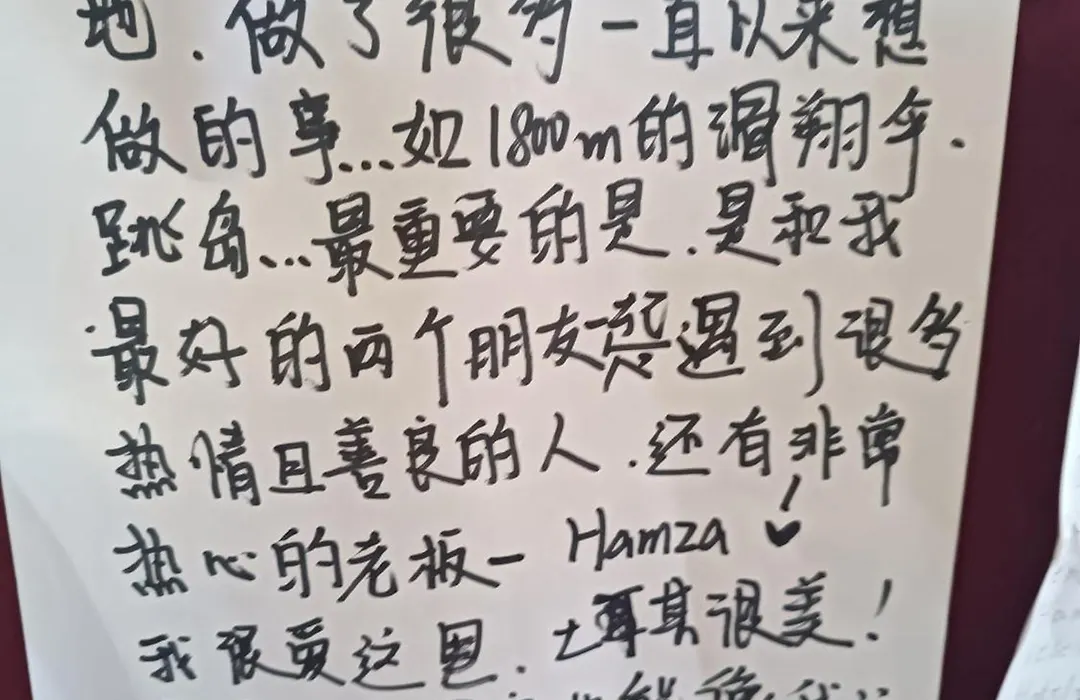 地.做了很多一直以来想
做的事...如1800m的滑翔伞.
跳岛...最重要的是.是和我
最好的两个朋友一起.遇到很多
热情且善良的人.还有非常
热心的老板- Hamza
我很爱这里.土耳其很美!